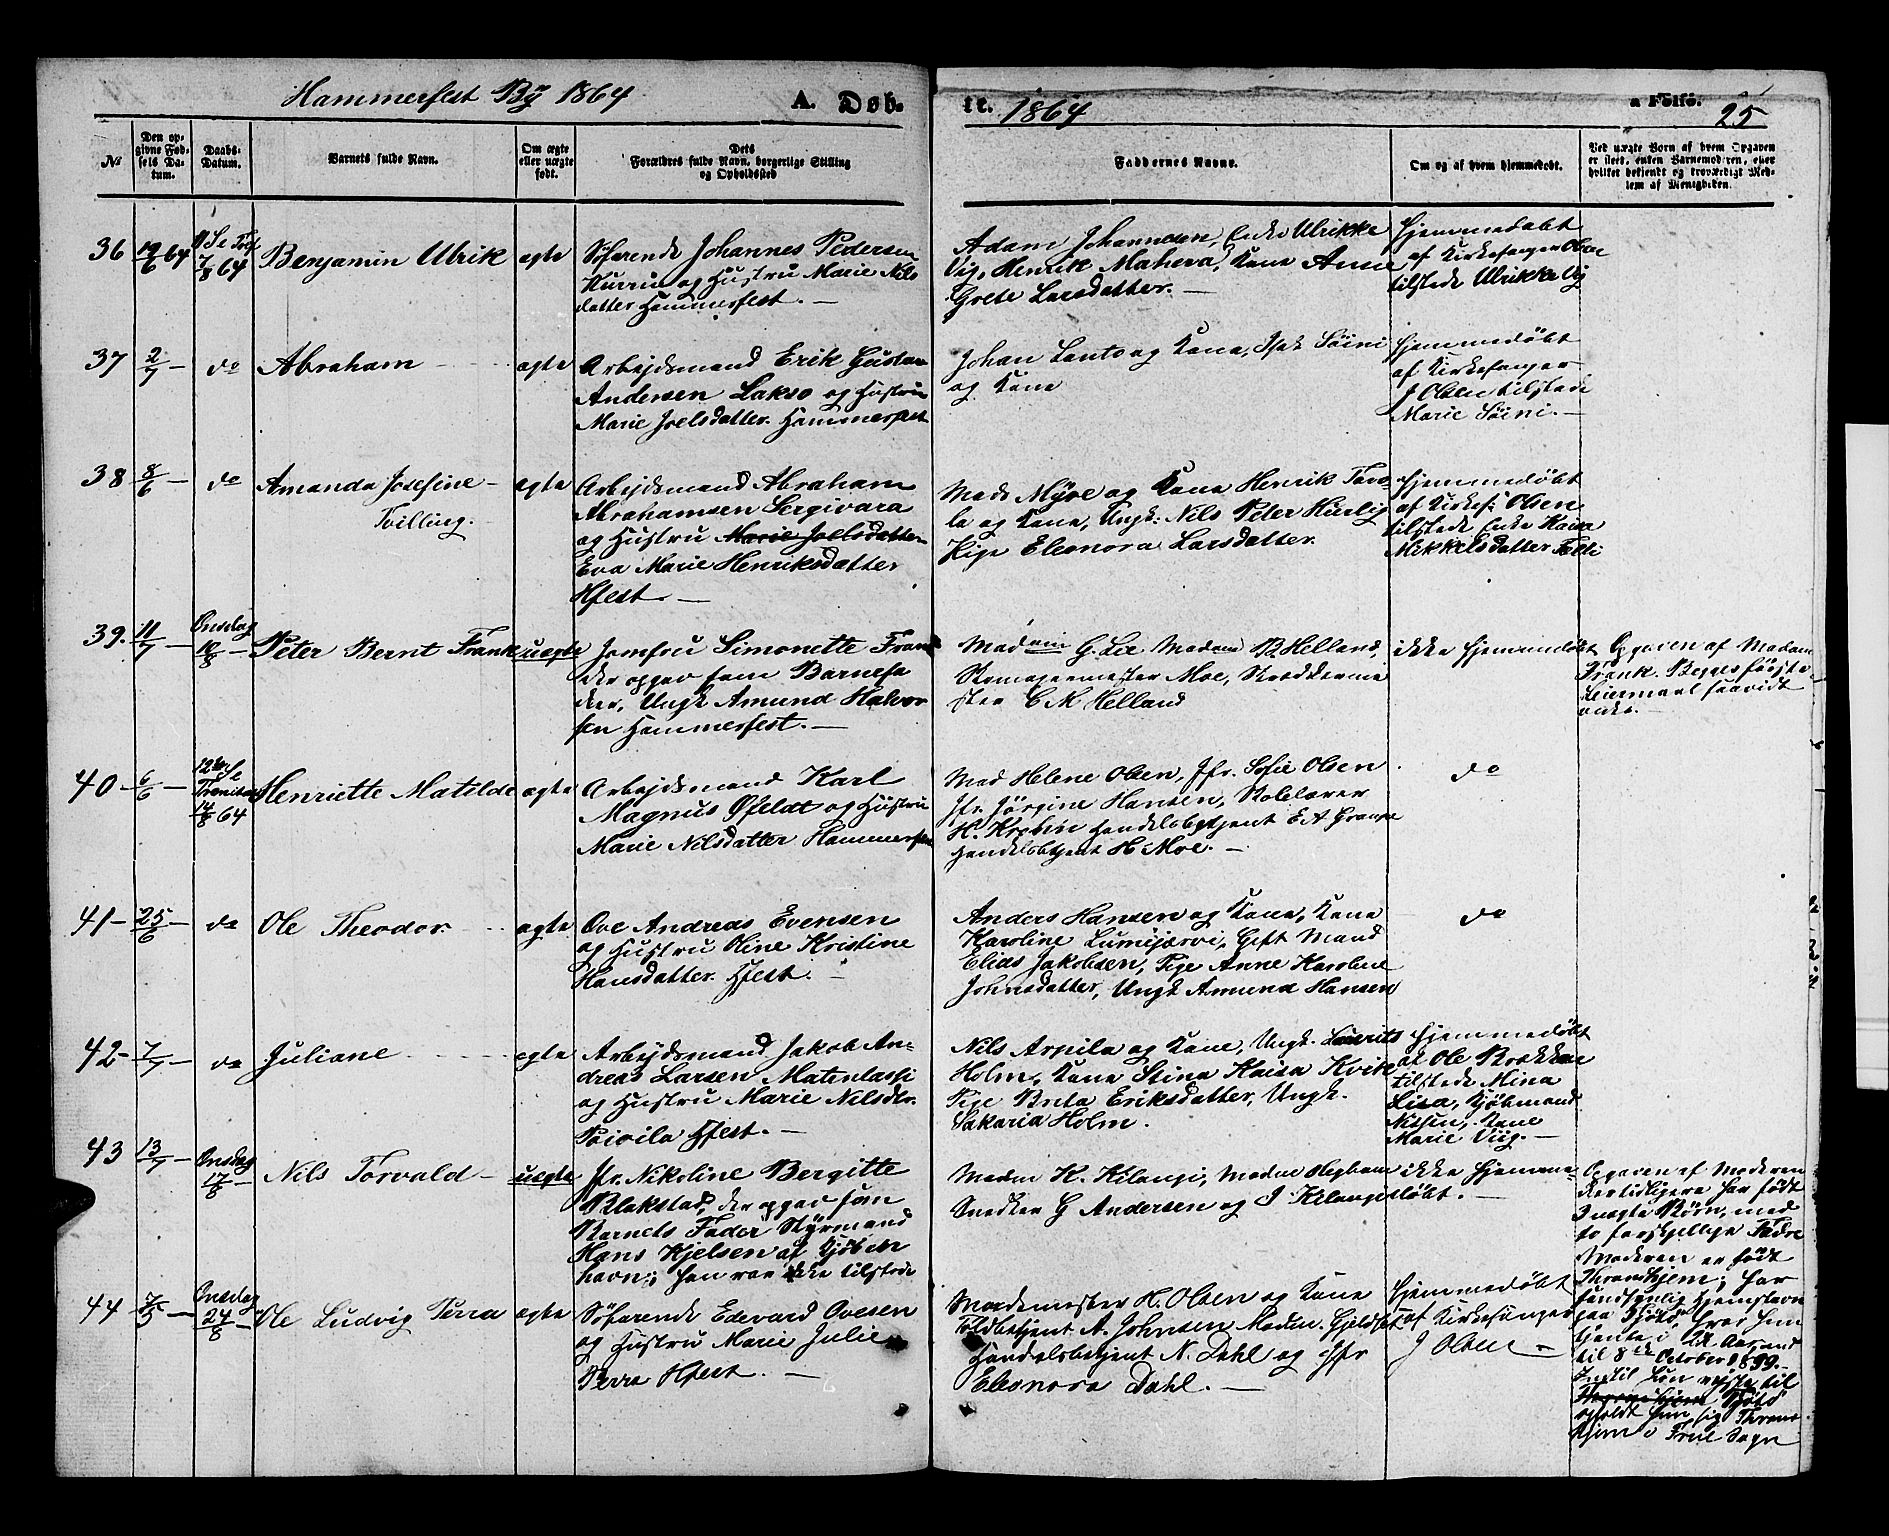 Hammerfest By 1864
A. Døb-
te. 1864
a Folio. 25
No
Den op-
givne Fød-
sels Da-
tum.
Daabs-
Datum.
Barnets fulde Navn.
Om ægte
eller uægte
født.
Dets
Forældres fulde Navn, borgerlige Stilling
og Opholdssted
Faddernes Navne.
Om og af hvem hjemmedøbt.
Ved uægte Børn af hvem Opgaven
er skeet, enten Barnemoderen, eller
hvilket bekjendt og troværdigt Med-
lem af Menigheden.
36
19/6 64
7/8 64
Benjamin Ulrik
ægte
Søfarende Johannes Pedersen
Kurru og Hustru Marie Nils
datter Hammerfest. —
Adam Johannesen, Enke Ulrikke
Vig, Henrik Mahera, Kone Anne
Grete Larsdatter. —
Hjemmedøbt
af Kirkesanger Olsen
tilstede Ulrikke Vig
37
2/7 —
do
Abraham
ægte
Arbejdsmand Erik Gustav
Andersen Lakso og Hustru
Marie Joelsdatter. Hammerfest
Johan Lanto og Kone, Isak Söini
og Kone
Hjemmedøbt
af Kirkesanger
J Olsen tilstede
Marie Söini. —
38
8/6 —
do
Amanda Josefine —
Tvilling.
ægte
Arbejdsmand Abraham
Abrahamsen Sergivara
og Hustru Marie Joelsdatter
Eva Marie Henriksdatter
Hfest. —
Mads Myre og Kone Henrik Tavo-
la og Kone, Ungk: Nils Peter Huslig
Pige Eleonora Larsdatter.
Hjemmedøbt
af Kirkes: Olsen
tilstede Enke Kaisa
Mikkelsdatter
39.
11/7 —
Onsdag
10/8 —
Peter Bernt Frank
uægte
Jomfru Simonette Frank
der opgav som Barnefa
der, Ungk Amund Halvor
sen Hammerfest. —
Madam G. Lie Madam B. Helland,
Skomagermester Moe, Skrædderme
ster C M Helland
ikke hjemmedøbt
Opgaven af Madam
Frank. Begges første
Leiermaal saavidt
vides. —
40
6/6 —
12te S e
Trinitatis
14/8 64
Henriette Matilde
ægte
Arbejdsmand Karl
Magnus Øfeldt og Hustru
Marie Nilsdatter Hammerfest
Mad Helene Olsen, Jfr. Sofie Olsen
Jfr. Jørgine Hansen, Skolelærer
H. Krebin Handelsbetjent E A
Handelsbetjent H Moe. —
do
41 —
25/6 —
do
Ole Theodor
ægte
Ove Andreas Evensen
og Hustru Oline Kristine
Hansdatter. Hfest. —
Anders Hansen og Kone, Kone
Karoline Lumijærvi, Gift Mand
Elias Jakobsen, Pige Anne Karoline
Johnsdatter, Ungk Amund Hansen
do
42 —
7/7 —
do
Juliane
ægte
Arbejdsmand Jakob An-
dreas Larsen Matinlassi
og Hustru Marie Nilsdtr.
Paivila Hfest. —
Nils Arpila og Kone, Ungk. Laurits
Holm, Kone Stina Kaisa Kvike
Pige Brita Eriksdatter, Ungk.
Sakaria Holm.
Hjemmedøbt
af Ole Brækkan
tilstede Mina
Lisa, Kjøbmand
Nilsen, Kone
Marie Viig. —
43
13/7 —
Onsdag
17/8 —
Nils Torvald —
uægte
Jfr. Nikoline Bergitte
Blakstad, der opgav som
Barnets Fader Styrmand
Hans Hjelsen af Kjøben
havn; han var ikke tilstede
Madm K. Kilangi, Madm
Snedker G Andersen og J. Kilangi
ikke hjemme-
døbt. —
Opgaven af Moderen
der tidligere har født
3 uægte Børn, med
to forskjellige Fædre
Moderen er født
Throndhjem; har
sandsynlig Hjemstavn
paa Hjötö, hvor hun
tjente i 2 1/2 Aar, and
til 8de October 1859.
Indtil hun rejste til
Throndhjem Hjötö
opholdt hun sig Thrond
hjem i Frue Sogn
44
7/5 —
Onsdag
24/8 —
Ole Ludvig Perra
ægte
Søfarende Edevard Ovesen
og Hustru Marie Julie
Perra Hfest. —
H. Olsen og Kone
Toldbetjent A. Johnsen Madm.
Handelsbetjent N. Dahl og Jfr
Eleonora Dahl. —
Hjemmedøbt
af Kirkesanger
J Olsen —